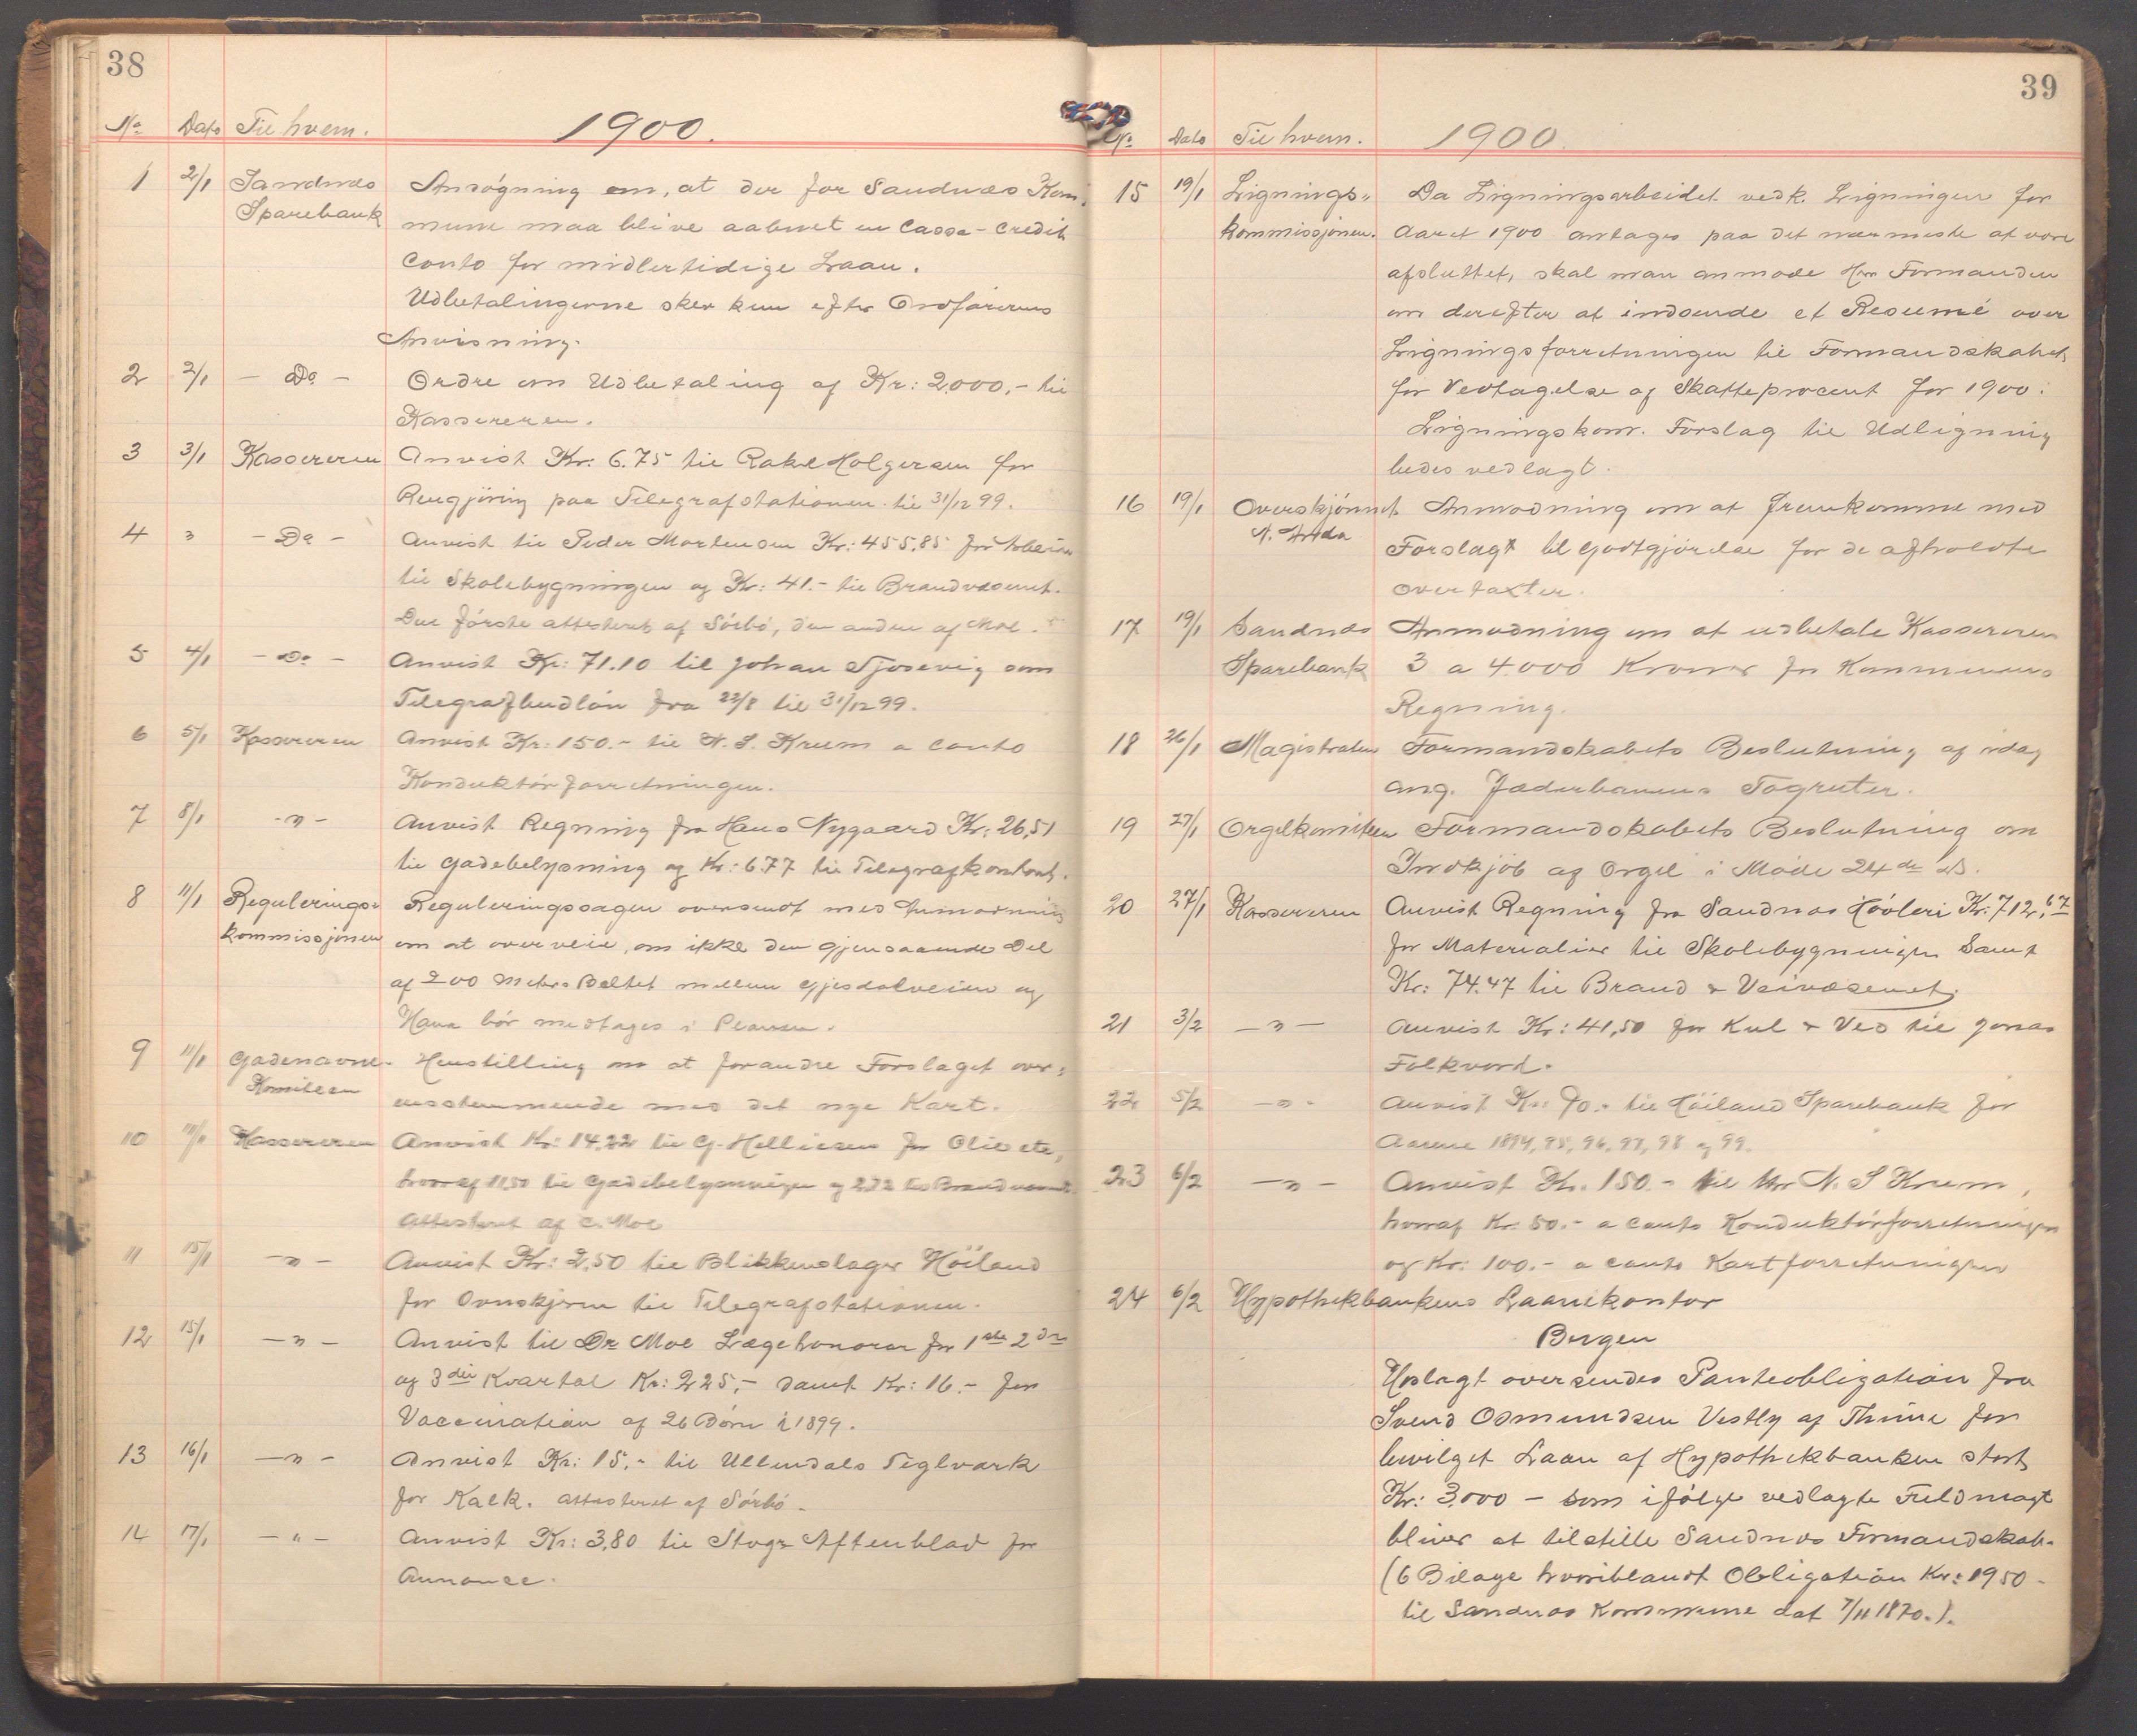 38
No Dato Til hvem. 1900.
1 2/1 Sandnæs Ansøgning om, at der for Sandnæs Kom-
Sparebank mune maa blive aabnet en Cassa-Credit
Conto for midlertidige Laan.
Udbetalingerne sker kun efter Ordførerens
Anvisning.
2 2/1 - Do - Ordre om Udbetaling af Kr: 2000,- til
Kassereren.
3 3/1 Kassereren Anvist Kr. 6.75 til Rakel Holgersen for
Rengjöring paa Telegrafstationen til 31/12 99.
4 " - Do - Anvist til Peder Mortensen Kr: 455,85 for
til Skolebygningen og Kr: 41.- til Brandvæsenet.
Den første attesteret af Sörbö, den anden af Moe.
5 4/1 - Do - Anvist Kr: 71.10 til Johan Tjosevig som
Telegrafbudlön fra 22/8 til 31/12 99.
6 5/1 Kassereren Anvist Kr: 150.- til N. S. Krum a conto
Konduktörforretningen.
7 8/1 - " - Anvist Regning fra Hans Nygaard Kr: 26,51
til Gadebelysning og Kr: 6.77 til Telegrafkontoret.
8 11/1 Regulerings- Reguleringssagen oversendt med Anmodning
kommissjonen om at overveie, om ikke den gjenstaaende Del
af 200 Meters Beltet mellem Gjesdalveien og
Hana bör medtages i Planen.
9 11/1 Gadenavne- Henstilling om at forandre Forslaget over-
Komiteen ensstemmende med det nye Kart.
10 11/1 Kassereren Anvist Kr: 14,22 til G. Helliesen for Olie etc,
hvoraf 11,50 til Gadebelysningen og 2,72 til Brandvæsenet.
Attesteret af C. Moe
11 15/1 - " - Anvist Kr: 2,50 til Blikkenslager Höiland
for Ovnskjerm til Telegrafstationen.
12 15/1 - " - Anvist til Dr Moe Lægehonorar for 1ste 2den
og 3die Kvartal Kr: 225,- samt Kr: 16.- for
Vaccination af 26 Börn i 1899.
13 16/1 - " - Anvist Kr: 15.- til Ullendals Teglværk
for Kalk. attesteret af Sörbö.
14 17/1 - " - Anvist Kr: 3,80 til Stvgr Aftenblad for
Annonce.
39
No Dato Til hvem. 1900.
15 19/1 Lignings- Da Ligningsarbeidet vedk. Ligningen for
kommissjonen. Aaret 1900 antages paa det nærmeste at være
afsluttet, skal man anmode Hr. Formanden
om derefter at indsende et Resumé over
Ligningsforretningen til Formandskabet
for Vedtagelse af Skatteprocent for 1900.
Ligningskom. Forslag til Udligning
bedes vedlagt.
16 19/1 Overskjønnet Anmodning om at fremkomme med
Forslag til Godtgjörelse for de afholdte
overtaxter.
17 19/1 Sandnæs Anmodning om at udbetale Kassereren
Sparebank 3 a 4000 Kroner for Kommunens
Regning.
18 26/1 Magistraten Formandskabets Beslutning af idag
ang. Jæderbanens Togruter.
19 27/1 Orgelkomiteen Formandskabets Beslutning om
Indkjöb af Orgel i Möde 24de ds.
20 27/1 Kassereren Anvist Regning fra Sandnæs Hövleri Kr: 712,67
for Materialier til Skolebygningen samt
Kr: 74.47 til Brand & Veivæsenet.
21 3/2 - " - Anvist Kr: 41,50 for Kul & Ved til Jonas
Folkvord.
22 5/2 - " - Anvist Kr: 90.- til Höiland Sparebank for
Aarene 1894, 95, 96, 97, 98 og 99.
23 6/2 - " - Anvist Kr. 150.- til Hr N. S Krum,
hvoraf Kr. 50.- a conto Konduktörforretningen
og Kr: 100.- a conto Kartforretningen
24 6/2 Hypothekbankens Laanekontor
Bergen
Vedlagt oversendes Panteobligation fra
Svend Osmundsen Vestly af Thime for
bevilget Laan af Hypothekbanken stort
Kr: 3.000 - som ifölge vedlagte Fuldmagt
bliver at tilstille Sandnæs Formandskab.
(6 Bilage hvoriblandt Obligation Kr: 1950-
til Sandnæs Kommune dat 7/11 1870.).